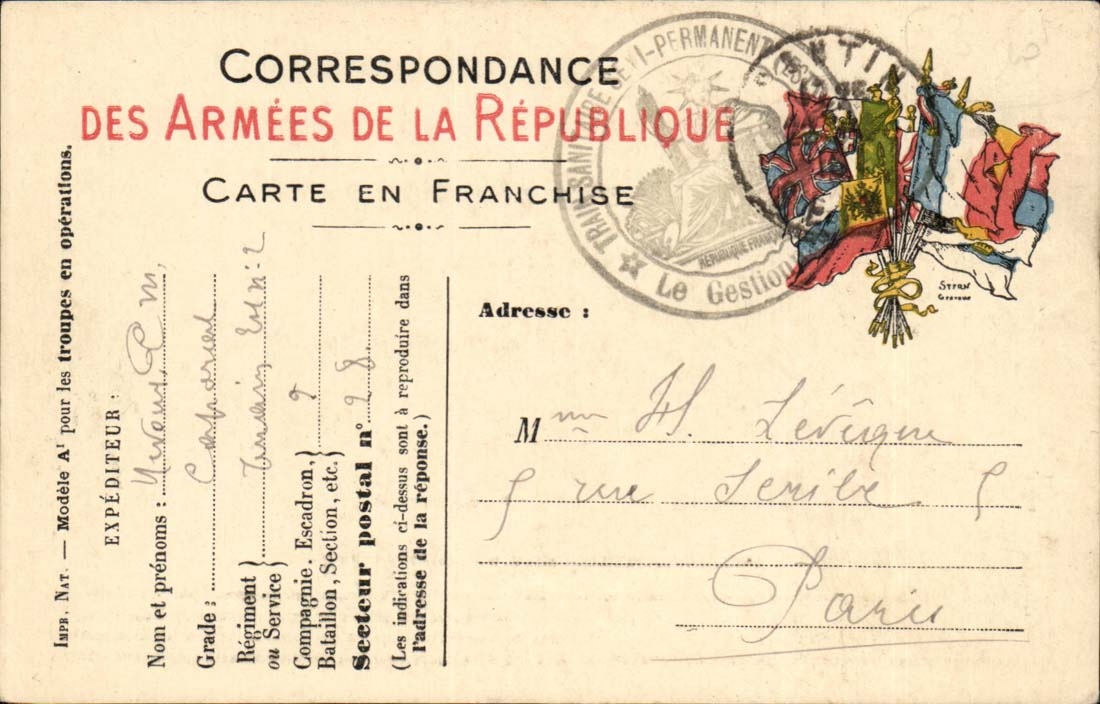 CORRESPONDANCE
DES ARMÉES DE LA RÉPUBLIQUE
CARTE EN FRANCHISE
TRAIN SANITAIRE SEMI-PERMANENT
RÉPUBLIQUE FRANÇ
Le Gestion
NTIN
Adresse :
Mme H. Lévêque
5 rue Scribe 5
Paris
IMPR. NAT. — Modèle A¹ pour les troupes en opérations.
EXPÉDITEUR :
Nom et prénoms :
Grade : Caporal
Régiment
ou Service }
Compagnie, Escadron,
Bataillon, Section, etc. } 9
Secteur postal n° 28.
(Les indications ci-dessus sont à reproduire dans
l'adresse de la réponse.)